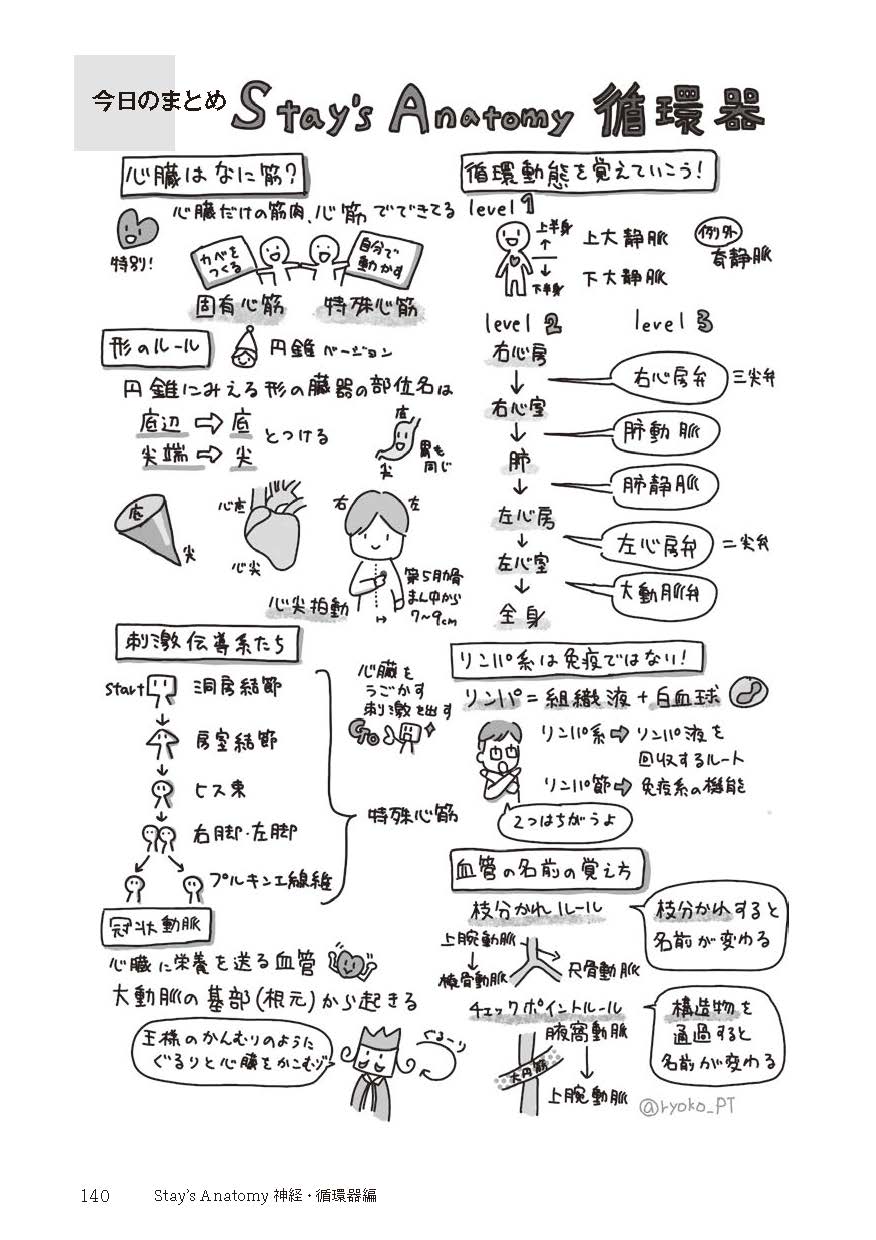 今日のまとめ
Stay's Anatomy 循環器
心臓はなに筋?
心臓だけの筋肉、心筋でできてる
特別!
カベを
つくる
自分で
動かす
固有心筋
特殊心筋
形のルール
円錐バージョン
円錐にみえる形の臓器の部位名は
底辺⇨底
尖端⇨尖
とつける
底
胃も
同じ
尖
底
尖
心底
心尖
右
左
心尖拍動
第5肋骨
まん中から
7〜9cm
刺激伝導系たち
start
洞房結節
↓
房室結節
↓
ヒス束
↓
右脚・左脚
プルキンエ線維
心臓を
うごかす
刺激を出す
特殊心筋
冠状動脈
心臓に栄養を送る血管
大動脈の基部(根元)から起きる
王様のかんむりのように
ぐるりと心臓をかこむゾ
ぐるーり
循環動態を覚えていこう!
level 1
上半身
↑
↓
下半身
上大静脈
下大静脈
例外
奇静脈
level 2
level 3
右心房
↓
右心房弁
三尖弁
右心室
↓
肺動脈
肺
↓
肺静脈
左心房
↓
左心房弁
二尖弁
左心室
↓
大動脈弁
全身
リンパ系は免疫ではない!
リンパ=組織液+白血球
リンパ系⇨リンパ液を
回収するルート
リンパ節⇨免疫系の機能
2つはちがうよ
血管の名前の覚え方
枝分かれルール
上腕動脈
↓
橈骨動脈
尺骨動脈
枝分かれすると
名前が変わる
チェックポイントルール
腋窩動脈
大円筋
↓
上腕動脈
構造物を
通過すると
名前が変わる
@ryoko_PT
140 Stay's Anatomy 神経・循環器編